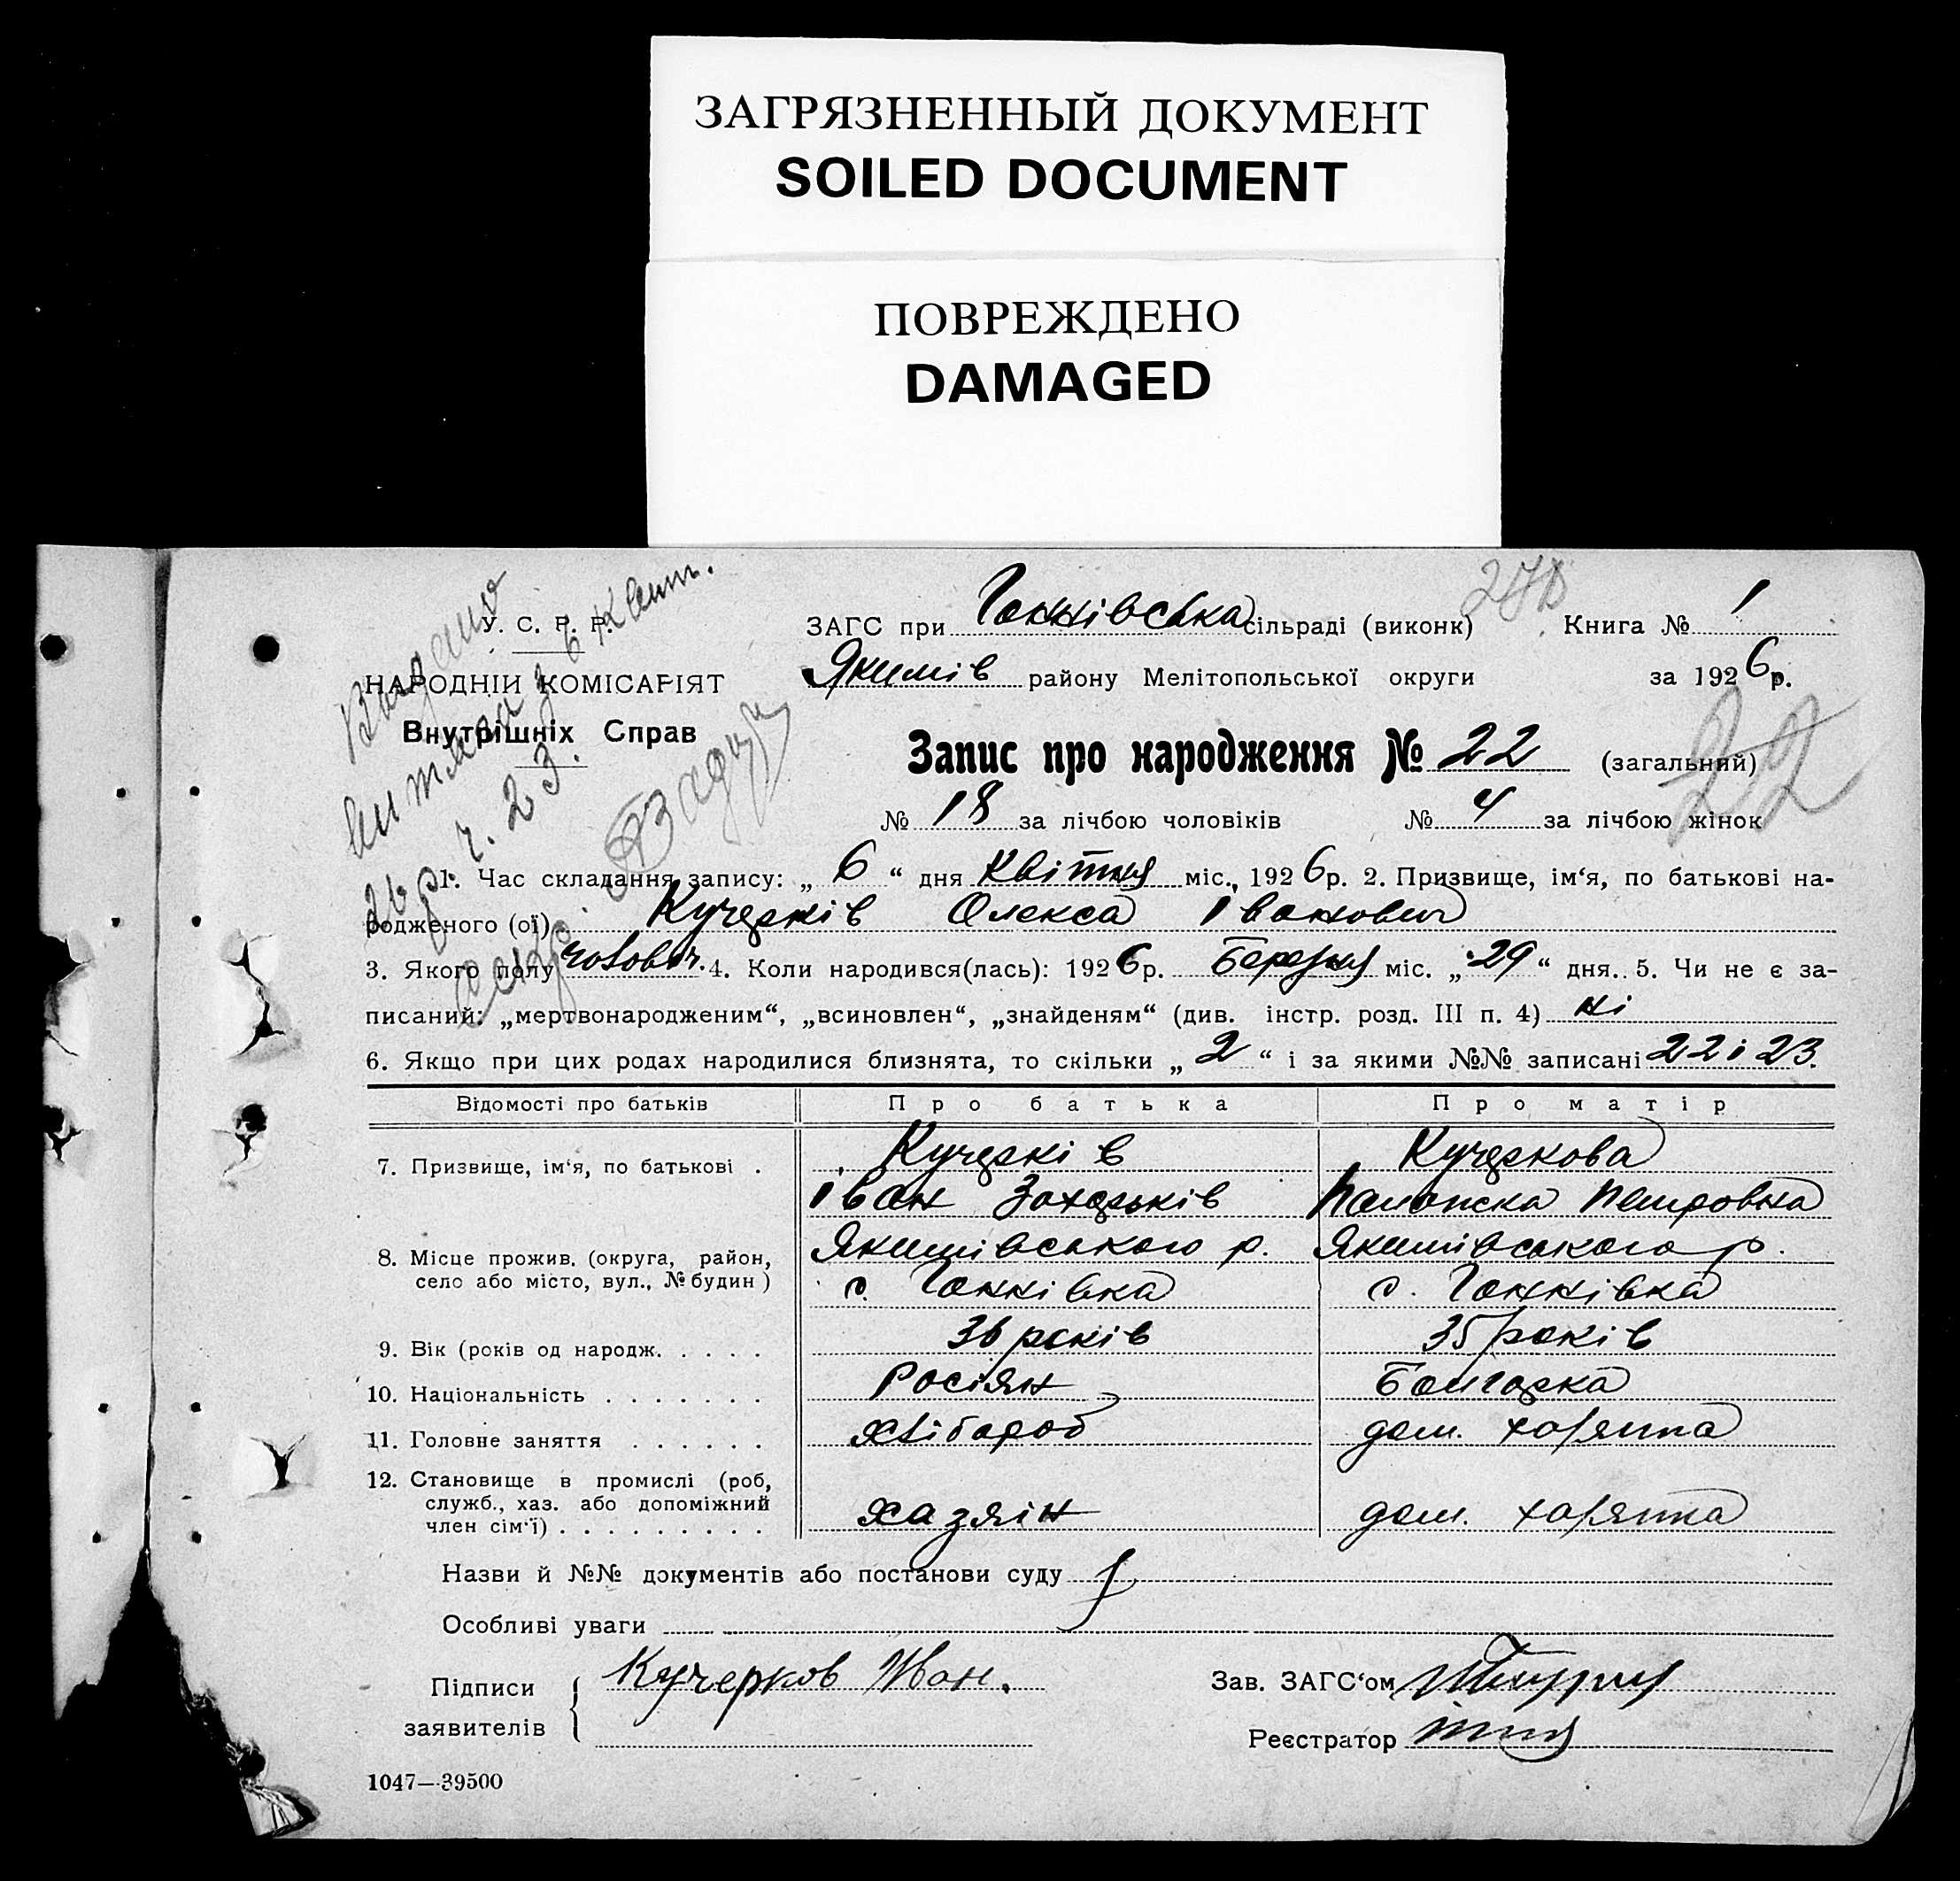 ЗАГРЯЗНЕННЫЙ ДОКУМЕНТ
SOILED DOCUMENT
ПОВРЕЖДЕНО
DAMAGED
У. С. Р. Р.
НАРОДНІЙ КОМІСАРІЯТ
Внутрішніх Справ
ЗАГС при Ганнівська сільраді (виконк) Книга № 1
Якимів району Мелітопольської округи за 1926р.
Запис про народження № 22 (загальний) 22
№ 18 за лічбою чоловіків № 4 за лічбою жінок
1. Час складання запису: „ 6 “ дня Квітня міс., 1926р. 2. Призвище, ім‘я, по батькові на-
родженого (ої) Кучерків Олекса Іванович
3. Якого полу чоловіч. 4. Коли народився(лась): 1926р. Березня міс. „29“ дня. 5. Чи не є за-
писаний: „мертвонародженим“, „всиновлен“, „знайденям“ (див. інстр. розд. III п. 4) ні
6. Якщо при цих родах народилися близнята, то скільки „ 2 “ і за якими №№ записані 22 і 23.
Відомості про батьків Про батька Про матір
7. Призвище, ім‘я, по батькові . Кучеркі в Кучеркова
Іван Захарьків Петровна
Якимівського р. Якимівського р.
8. Місце прожив. (округа, район,
село або місто, вул., № будин) с. Ганнівка с. Ганнівка
9. Вік (років од народж. . . . . 36 років 35 років
10. Національність . . . . . . . Росіян Болгарка
11. Головне заняття . . . . . . хлібороб дом. хазяйка
12. Становище в промислі (роб,
служб., хаз. або допоміжний
член сім‘ї) . . . . . . . . . хазяін дом. хазяйка
Назви й №№ документів або постанови суду
Особливі уваги
Підписи Кучерков Иван. Зав. ЗАГС‘ом
заявителів Реєстратор
1047—39500